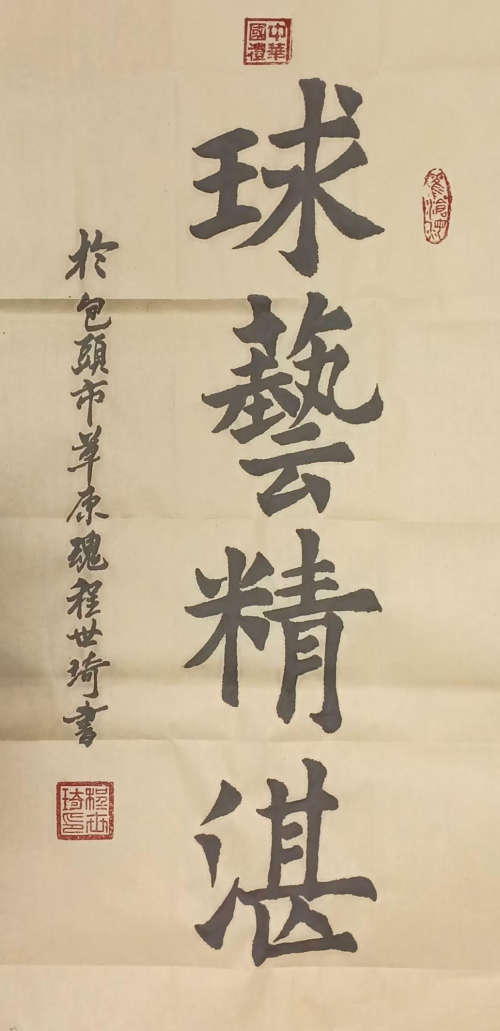 中華國禮
球藝精湛
於包頭市草原魂程世琦書
程世琦印